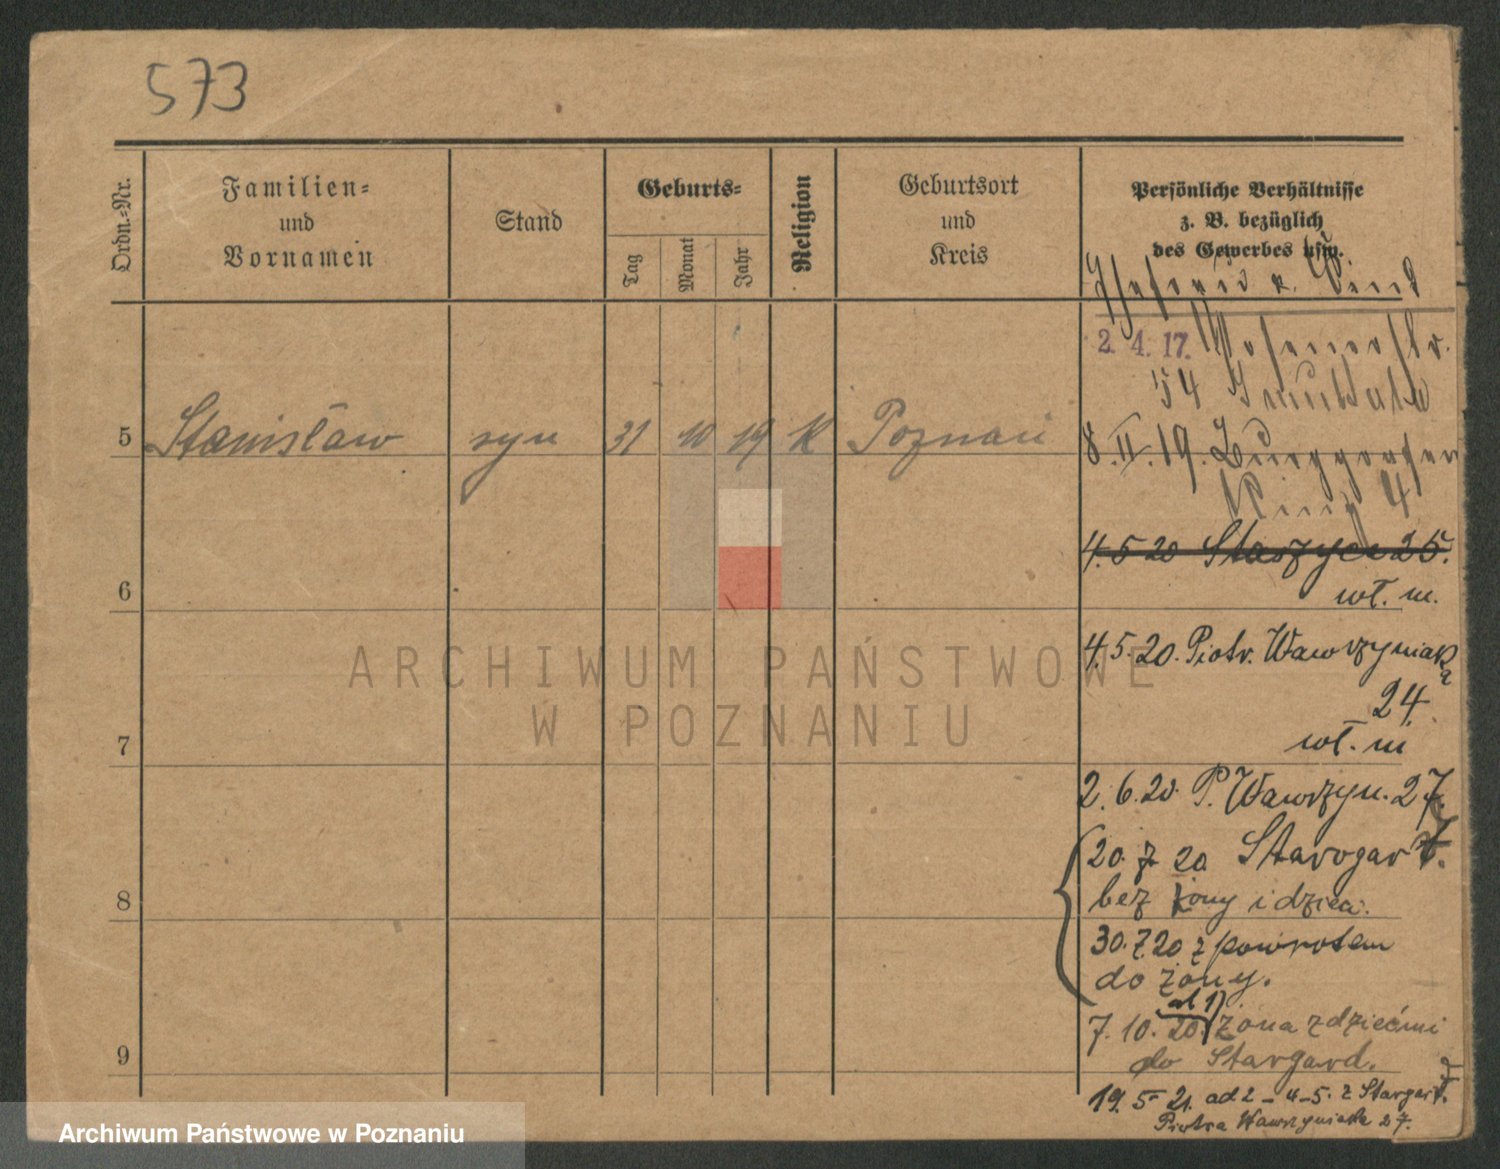 573
Ordn.-Nr.
Familien-
und
Vornamen
Stand
Geburts-
Tag
Monat
Jahr
Religion
Geburtsort
und
Kreis
Persönliche Verhältnisse
z. B. bezüglich
des Gewerbes usw.
2. 4. 17.
54
5 Stanisław syn 31 10 19 K Poznań
8. II. 19.
Ring 4
4.5 20 Starzyca 25.
wł. m.
6
4.5.20. Piotr. Wawrzyniaka
24.
wł. m
7
2.6.20. P. Wawrzyn. 27.
20. 7. 20 Starogard.
bez żony i dzieci.
8
30.7.20 z powrotem
do żony.
ad 1)
7. 10. 20. żona z dziećmi
do Stargard.
9
19. 5 21. ad 2 - 4 - 5. z Stargard.
Piotra Wawrzyniaka 27.
ARCHIWUM PAŃSTWOWE
W POZNANIU
Archiwum Państwowe w Poznaniu